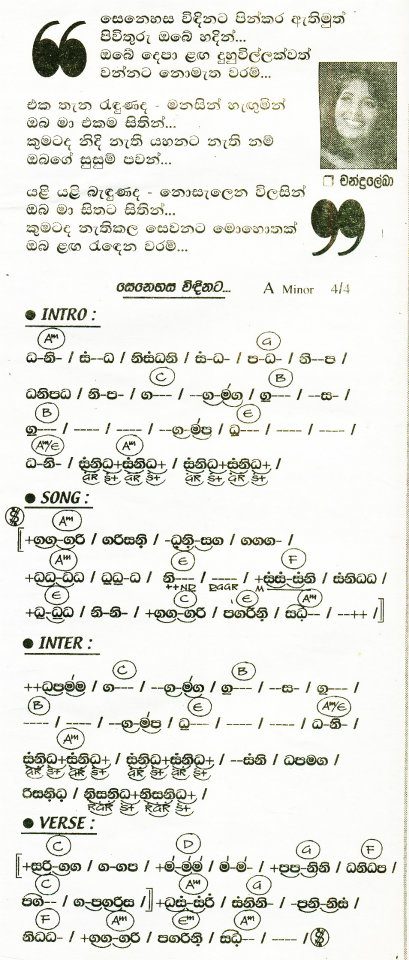 සෙනෙහස විඳිනට පින්කර ඇතිමුත්
පිවිතුරු ඔබේ හදින්...
ඔබේ දෙපා ළඟ දුහුවිල්ලක්වත්
වන්නට නොමැත වරම්...
එක තැන රැඳුණද - මනසින් හැඟුමින්
ඔබ මා එකම සිතින්...
කුමටද නිදි නැති යහනට නැති නම්
ඔබගේ සුසුම් පවන්...
යළි යළි බැඳුණද - නොසැලෙන විලසින්
ඔබ මා සිතට සිතින්...
කුමටද නැතිකල සෙවනට මොහොතක්
ඔබ ළඟ රැඳෙන වරම්...
චන්ද්‍රලේඛා
සෙනෙහස විඳිනට... A Minor 4/4
● INTRO :
Am G
ධ-නි- / සං--ධ / නිසංධනි / සං-ධ- / ප-ධ- / නි--ප /
C B
ධනිපධ / නි-ප- / ග---- / ---ග-ම්ග / ගු---- / ---ස- /
B E
ගු---- / ---- / ---- / ---ග-ම්ප / ධු---- / ---- / ---- /
Am/E Am
ධ-නි- / සංනිධ+සංනිධ+ / සංනිධ+සංනිධ+ /
GR S+ GR S+ GR S+ GR S+
● SONG :
Am
+ගග-ගරි / ගරිසනි / -ධනි-සග / ගගග- /
Am E F
+ධධ-ධධ / ධධ-ධ / නි---- / ---- / +සංසං-සංනි / සංනිධධ /
E C E Am
+ධ-ධධ / නි-නි- / +ගග-ගරි / පගරිනි / සධ-- / --++ /
● INTER :
C B
++ධපමම / ග---- / ---ග-මග / ගු---- / ---ස- / ගු---- /
B E Am/E
---- / ---- / ---ග-ම්ප / ධු---- / ---- / ---- / ධ-නි- /
Am
සංනිධ+සංනිධ+ / සංනිධ+සංනිධ+ / --සංනි / ධපමග /
GR S+ GR S+ GR S+ GR S+
රිසනිධ / නිසනිධ+නිසනිධ+ /
RGR S+ RGR S+
● VERSE :
C D G F
+සරි-ගග / ග-ගප / +ම්-ම්ම් / ම්-ම්- / +පප-නිනි / ධනිධප /
C Am G
පග--- / ග-පගරිස / +ධසං-සංරි / සංනිනි- / -පනි-නිසං /
F Am Em Am
නිධධ- / +ගග-ගරි / පගරිනි / සධ-- / ---- /